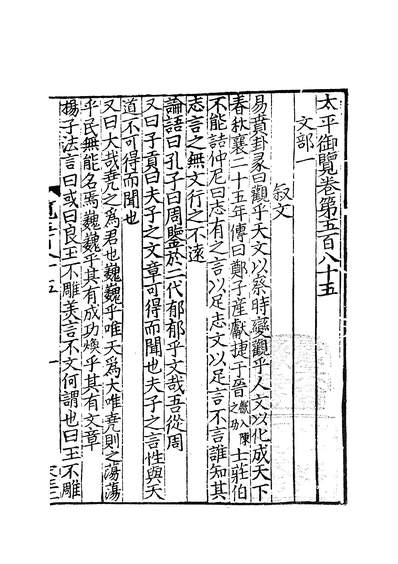 太平御覽卷第五百八十五
文部一
叙文
易賁卦彖曰觀乎天文以察時變觀乎人文以化成天下
春秋襄二十五年傳曰鄭子産獻捷于晋獻入陳之功士莊伯
不能詰仲尼曰志有之言以足志文以足言不言誰知其
志言之無文行之不遠
論語曰孔子曰周鑒於二代郁郁乎文哉吾從周
又曰子貢曰夫子之文章可得而聞也夫子之言性與天
道不可得而聞也
又曰大哉堯之爲君也巍巍乎唯天爲大唯堯則之蕩蕩
乎民無能名焉巍巍乎其有成功煥乎其有文章
揚子法言曰或曰良玉不雕美言不文何謂也曰玉不雕